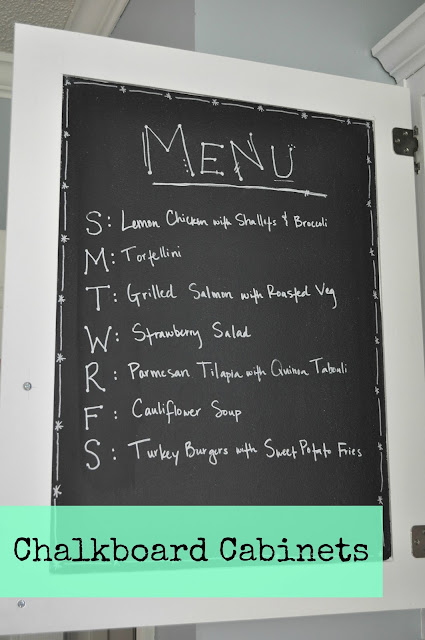 MENU
S: Lemon Chicken with Shallots & Broccoli
M: Tortellini
T: Grilled Salmon with Roasted Veg
W: Strawberry Salad
R: Parmesan Tilapia with Quinoa Tabouli
F: Cauliflower Soup
S: Turkey Burgers with Sweet Potato Fries
Chalkboard Cabinets